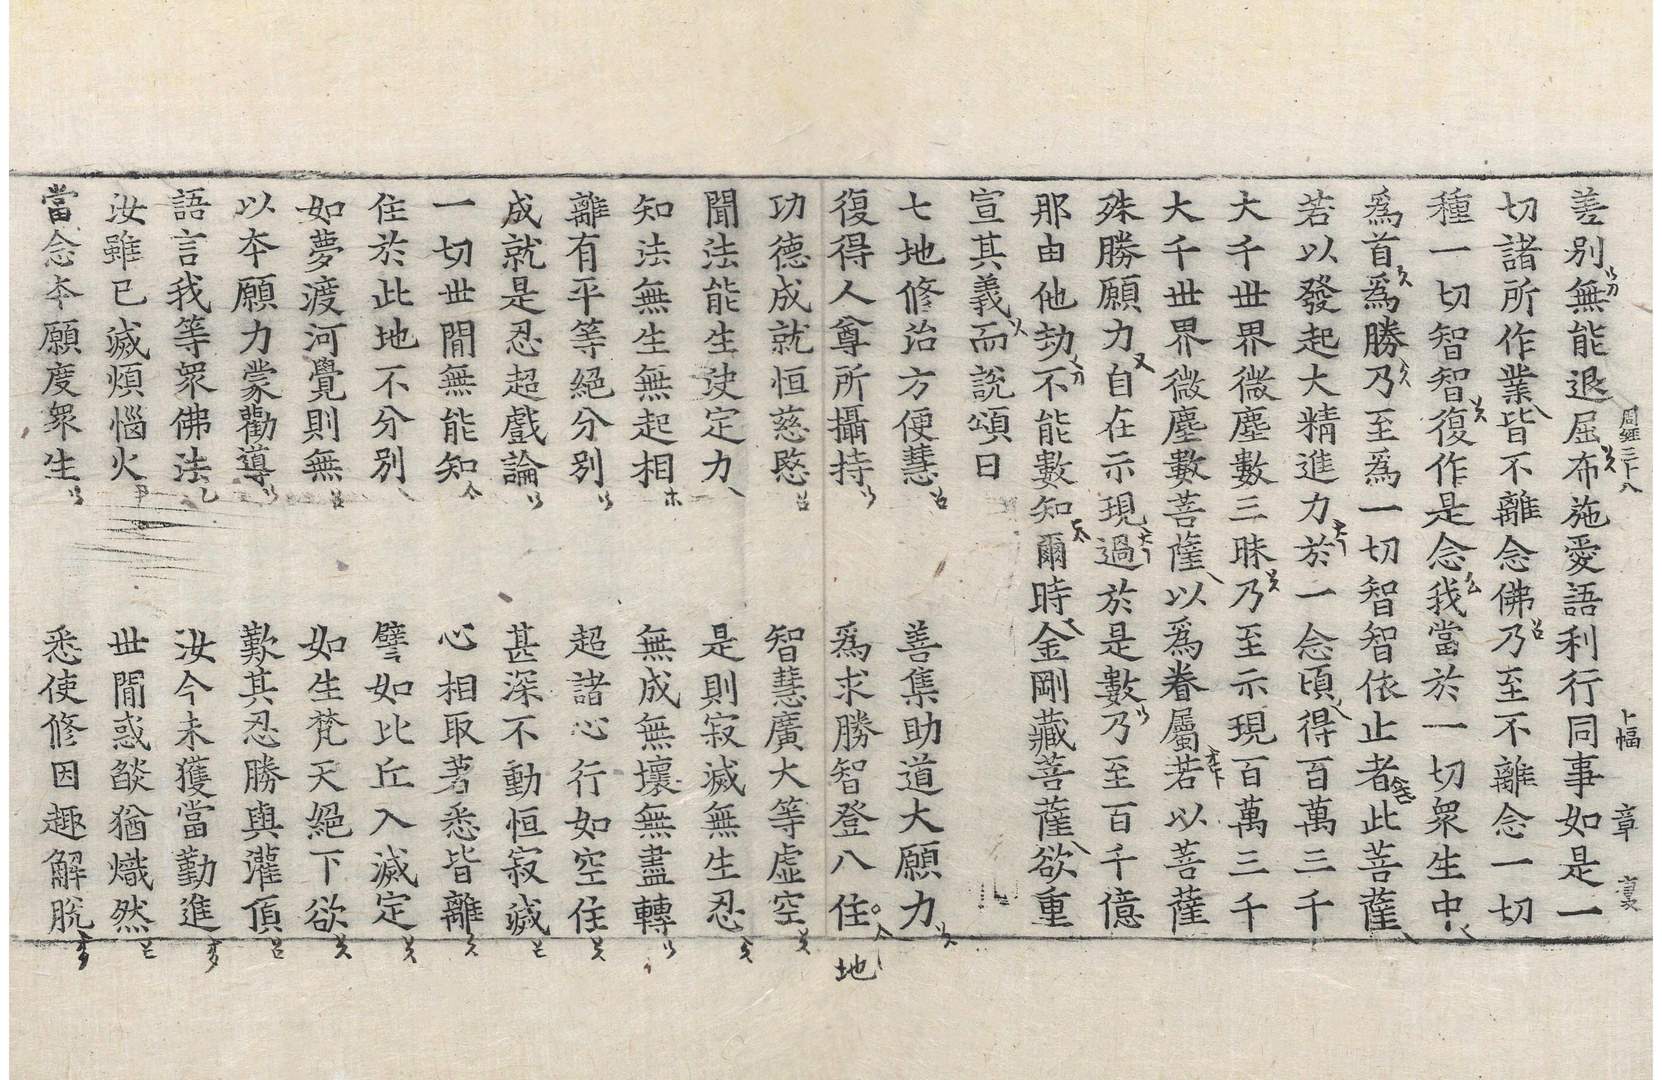 周經三十八 卜幅 章
差別無能退屈布施愛語利行同事如是一
切諸所作業皆不離念佛乃至不離念一切
種一切智智復作是念我當於一切衆生中
爲首爲勝乃至爲一切智智依止者此菩薩
若以發起大精進力於一念頃得百萬三千
大千世界微塵數三昧乃至示現百萬三千
大千世界微塵數菩薩以爲眷屬若以菩薩
殊勝願力自在示現過於是數乃至百千億
那由他劫不能數知爾時金剛藏菩薩欲重
宣其義而說頌曰
七地修治方便慧 善集助道大願力
復得人尊所攝持 爲求勝智登八住 地
功德成就恒慈愍 智慧廣大等虛空
聞法能生決定力 是則寂滅無生忍
知法無生無起相 無成無壞無盡轉
離有平等絕分別 超諸心行如空住
成就是忍超戲論 甚深不動恒寂滅
一切世間無能知 心相取著悉皆離
住於此地不分別 譬如比丘入滅定
如夢渡河覺則無 如生梵天絕下欲
以本願力蒙勸導 歎其忍勝與灌頂
語言我等眾佛法 汝今未獲當勤進
汝雖已滅煩惱火 世間惑燄猶熾然
當念本願度眾生 悉使修因趣解脫